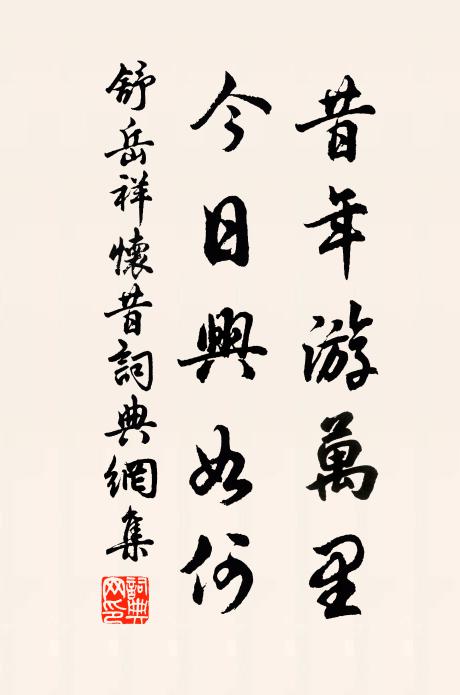 昔年游萬里
今日興如何
舒岳祥懷昔詞典網集
詞典網印